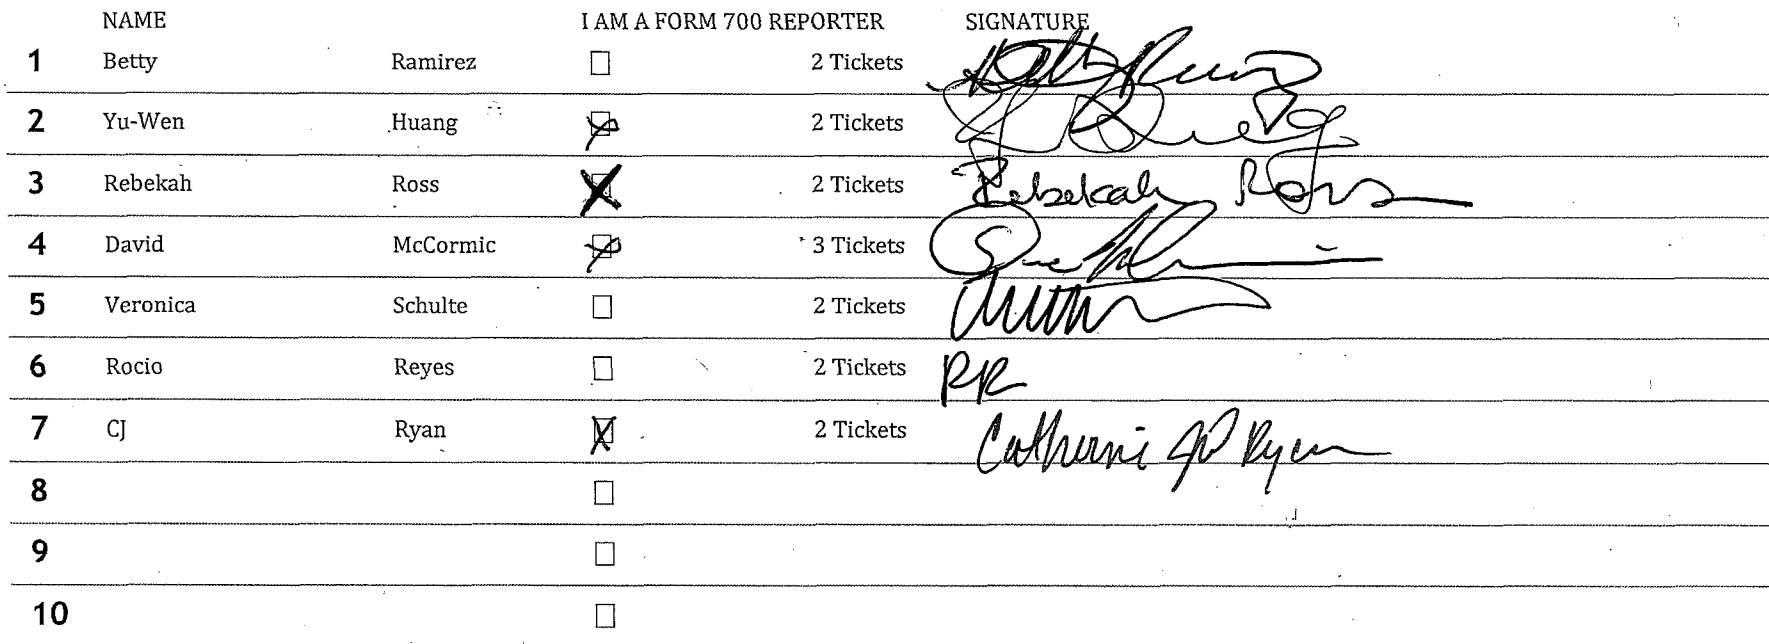 NAME I AM A FORM 700 REPORTER SIGNATURE
1 Betty Ramirez ☐ 2 Tickets
2 Yu-Wen Huang ☒ 2 Tickets
3 Rebekah Ross ☒ 2 Tickets Rebekah Ross
4 David McCormic ☒ 3 Tickets
5 Veronica Schulte ☐ 2 Tickets
6 Rocio Reyes ☐ 2 Tickets RR
7 CJ Ryan ☒ 2 Tickets Catherine Ryan
8 ☐
9 ☐
10 ☐